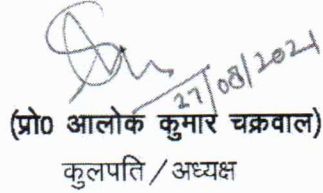 27/08/2021
(प्रो0 आलोक कुमार चक्रवाल)
कुलपति / अध्यक्ष